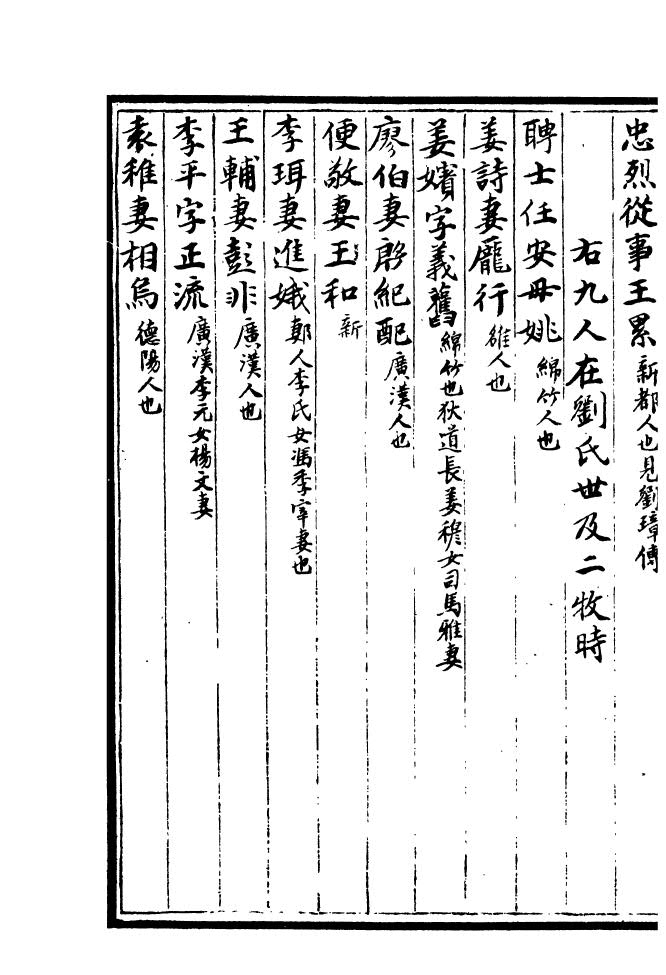 忠烈從事王累新都人也見劉璋傳
右九人在劉氏世及二牧時
聘士任安母姚綿竹人也
姜詩妻龐行雒人也
姜嬪字義舊綿竹也狄道長姜穆女司馬雅妻
廖伯妻殷紀配廣漢人也
便敬妻王和新
李珥妻進娥郪人李氏女馮季宰妻也
王輔妻彭非廣漢人也
李平字正流廣漢李元女楊文妻
袁稚妻相烏德陽人也